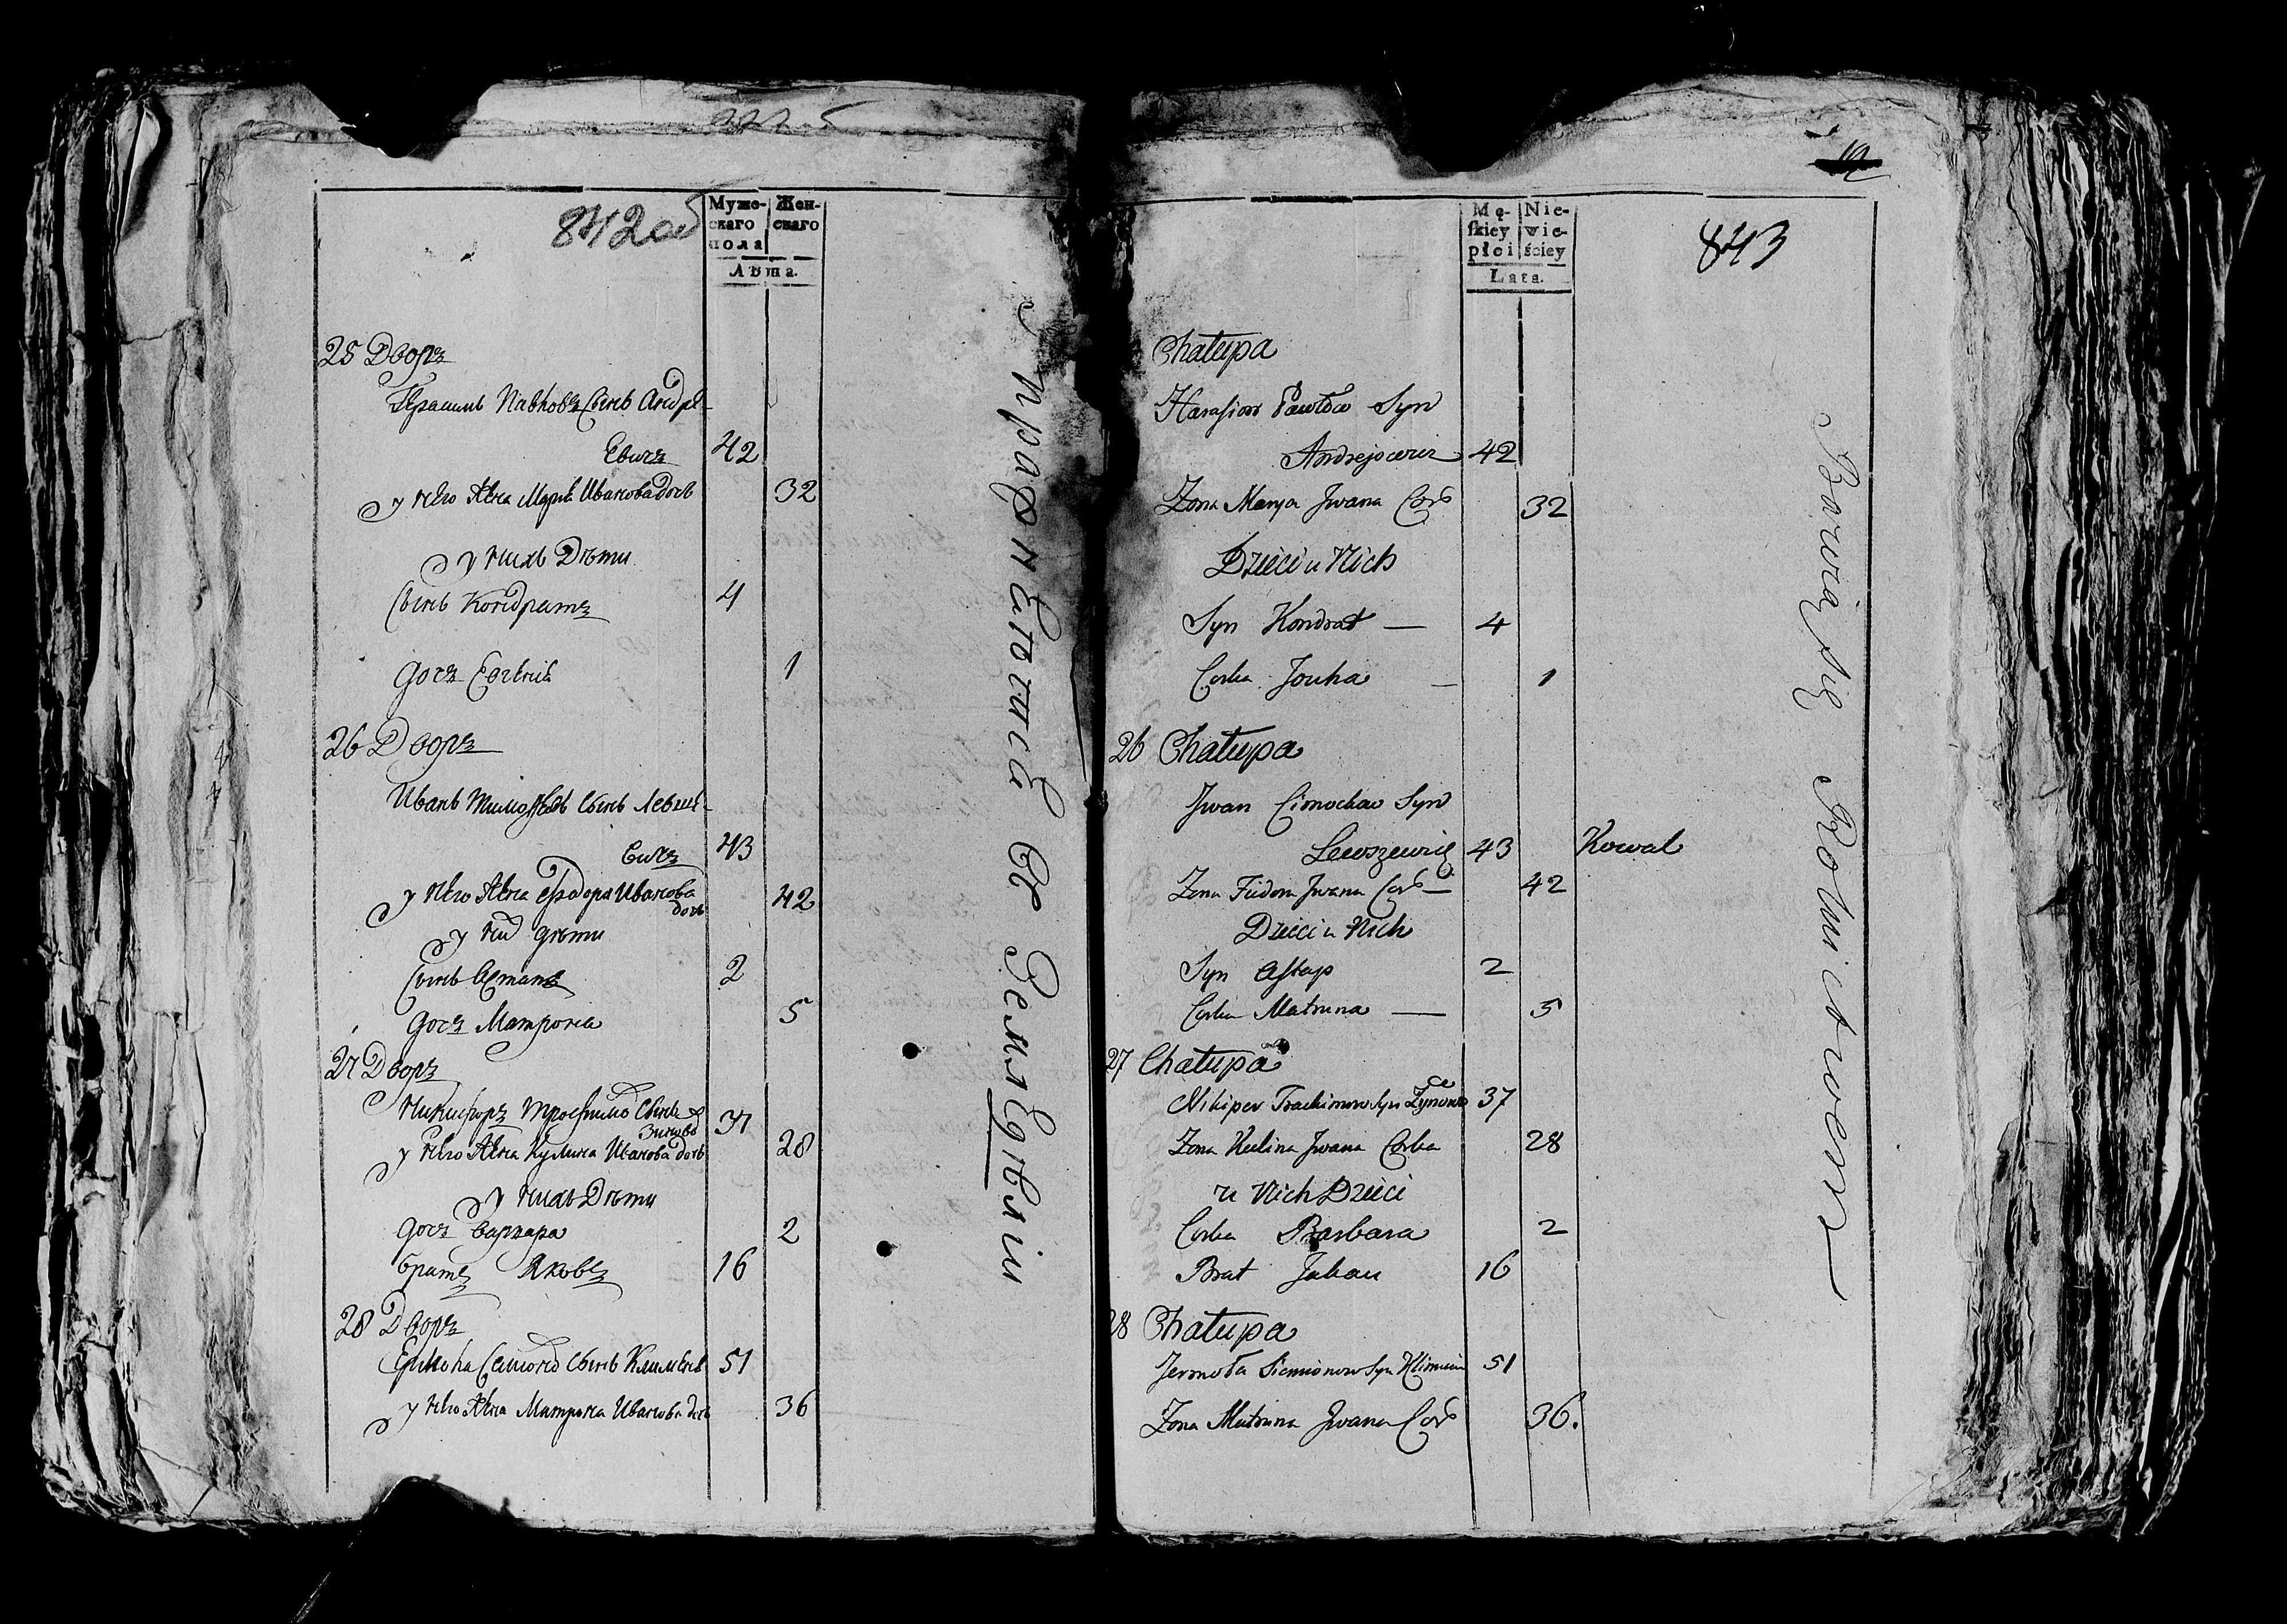 842об
Муже- Жен-
скаго скаго
пола
Лѣта.
25 Дворъ
Герасимъ Павловъ Сынъ Андре-
Евичъ 42
у него Жена Марья Иванова дочь 32
у нихъ Дѣти
Сынъ Кондратъ 4
дочь Евгенія 1
26 Дворъ
Иванъ Тимофеевъ Сынъ Левше-
Вичъ 43
у него Жена Федора Иванова
дочь 42
у них дѣти
Сынъ Астапъ 2
дочь Матрона 5
27 Дворъ
Никифоръ Трофимовъ Сынъ
Зинов 37
у него Жена Кулина Иванова дочь 28
у нихъ Дѣти
дочь Варвара 2
братъ Яковъ 16
28 Дворъ
Ермола Семіоновъ Сынъ Клименя 51
у него Жена Матрона Иванова дочь 36
упражняются въ Земледѣліи
843
Mę- Nie-
ſkiey wie-
płci ściey
Lata.
Chałupa
Harasim Pawłow Syn
Andrejewicz 42
Żona Marya Jwana Cor 32
Dzieci u Nich
Syn Kondrat — 4
Corka Jouha — 1
26 Chałupa
Jwan Cimochow Syn
Lewszewicz 43 Kowal
Zona Fiedora Jwana Cor — 42
Dzieci u Nich
Syn Astap 2
Corka Matruna — 5
27 Chałupa
Nikiper Trachimow Syn Zynow 37
Zona Kulina Jwana Corka 28
u Nich Dzieci
Corka Barbara 2
Brat Jakau 16
28 Chałupa
Jermoła Siemionow Syn Klimienia 51
Zona Matruna Jwana Cor 36.
Bawią się Rolnictwem